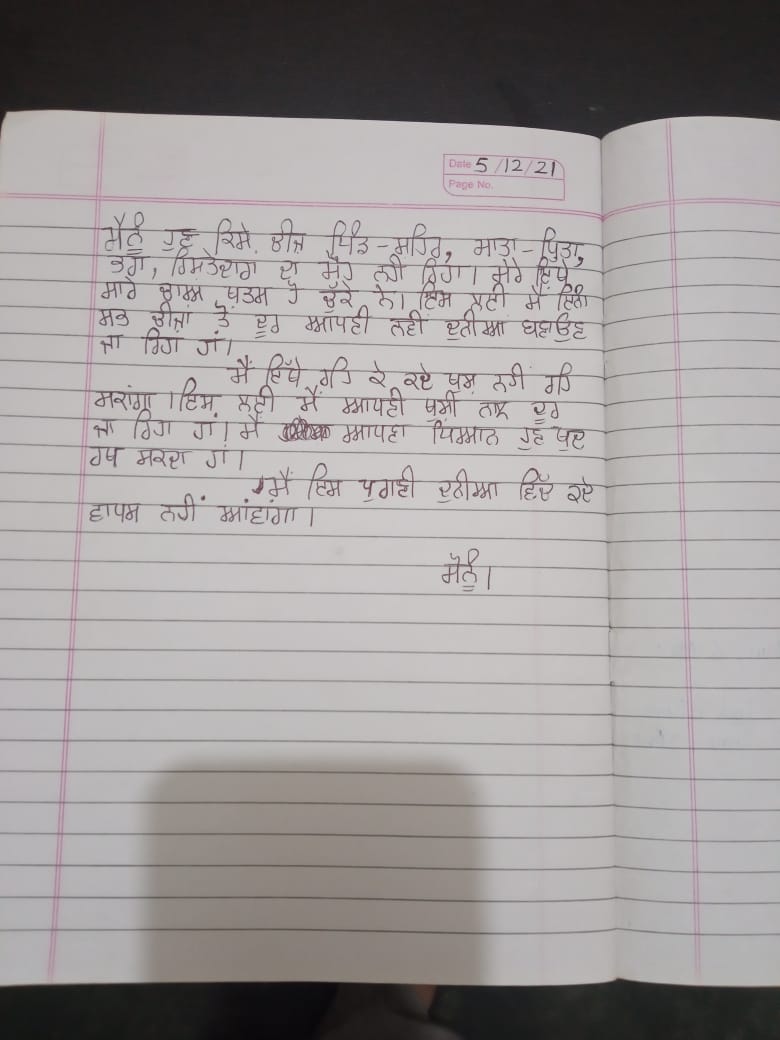 Date 5/12/21
Page No.
ਮੈਨੂੰ ਹੁਣ ਕਿਸੇ ਚੀਜ਼ ਪਿੰਡ-ਸ਼ਹਿਰ, ਮਾਤਾ-ਪਿਤਾ,
ਭਰਾ, ਰਿਸ਼ਤੇਦਾਰਾ ਦਾ ਮੋਹ ਨਹੀ ਰਿਹਾ। ਮੇਰੇ ਇੱਥੇ
ਸਾਰੇ ਚਾਅ ਖ਼ਤਮ ਹੋ ਚੁੱਕੇ ਨੇ। ਇਸ ਲਈ ਮੈਂ ਇਨੀ
ਸਭ ਚੀਜ਼ਾਂ ਤੋਂ ਦੂਰ ਆਪਣੀ ਨਵੀਂ ਦੁਨੀਆ ਬਣਾਉਣ
ਜਾ ਰਿਹਾ ਹਾਂ।
ਮੈਂ ਇੱਥੇ ਰਹਿ ਕੇ ਕਦੇ ਖੁਸ਼ ਨਹੀਂ ਰਹਿ
ਸਕਾਂਗਾ। ਇਸ ਲਈ ਮੈਂ ਆਪਣੀ ਖੁਸ਼ੀ ਨਾਲ ਦੂਰ
ਜਾ ਰਿਹਾ ਹਾਂ। ਮੈਂ ਆਪਣਾ ਧਿਆਨ ਹੁਣ ਖੁਦ
ਰੱਖ ਸਕਦਾ ਹਾਂ।
ਮੈਂ ਇਸ ਪੁਰਾਣੀ ਦੁਨੀਆ ਵਿੱਚ ਕਦੇ
ਵਾਪਸ ਨਹੀਂ ਆਂਵਾਂਗਾ।
ਸੋਨੂੰ।